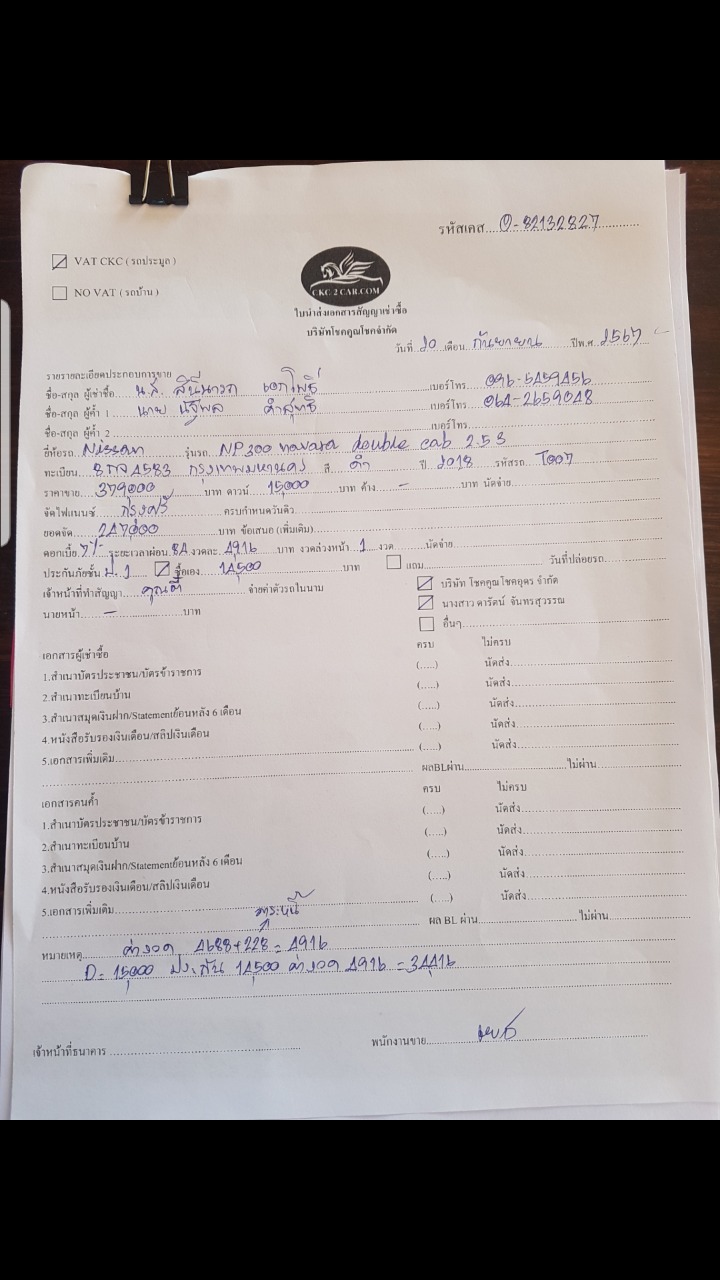 รหัสเคส....0-82132827
VAT CKC ( รถประมูล )
NO VAT ( รถบ้าน )
CKC 2 CAR.COM
ใบนำส่งเอกสารสัญญาเช่าซื้อ
บริษัทโชคคูณโชคจำกัด
วันที่ 20 เดือน กันยายน ปีพ.ศ. 2567
รายรายละเอียดประกอบการขาย
ชื่อ-สกุล ผู้เช่าซื้อ น.ส. สินีนาวถ เอกโพธิ์ เบอร์โทร 096-5459456
ชื่อ-สกุล ผู้ค้ำ 1 นาย นัฐพล คำสุทธิ์ เบอร์โทร 064-2659048
ชื่อ-สกุล ผู้ค้ำ 2 เบอร์โทร
ยี่ห้อรถ Nissan รุ่นรถ NP300 navara double cab 2.5 S
ทะเบียน 8กล 4583 กรุงเทพมหานคร สี ดำ ปี 2018 รหัสรถ T007
ราคาขาย 379000 บาท ดาวน์ 15,000 บาท ค้าง - บาท นัดจ่าย
จัดไฟแนนซ์ กรุงศรี ครบกำหนดวันคิว
ยอดจัด 247,000 บาท ข้อเสนอ (เพิ่มเติม)
ดอกเบี้ย 7% ระยะเวลาผ่อน 84 งวดละ 4916 บาท งวดล่วงหน้า 1 งวด นัดจ่าย
ประกันภัยชั้น ป.1 ซื้อเอง 14,500 บาท แถม วันที่ปล่อยรถ
เจ้าหน้าที่ทำสัญญา จ่ายค่าตัวรถในนาม บริษัท โชคคูณโชคอุดร จำกัด
นายหน้า - บาท นางสาว ดารัตน์ จันทรสุวรรณ
อื่นๆ
เอกสารผู้เช่าซื้อ ครบ ไม่ครบ
1.สำเนาบัตรประชาชน/บัตรข้าราชการ (.....) นัดส่ง
2.สำเนาทะเบียนบ้าน (.....) นัดส่ง
3.สำเนาสมุดเงินฝาก/Statementย้อนหลัง 6 เดือน (.....) นัดส่ง
4.หนังสือรับรองเงินเดือน/สลิปเงินเดือน (.....) นัดส่ง
5.เอกสารเพิ่มเติม (.....) นัดส่ง
ผลBLผ่าน ไม่ผ่าน
เอกสารคนค้ำ ครบ ไม่ครบ
1.สำเนาบัตรประชาชน/บัตรข้าราชการ (.....) นัดส่ง
2.สำเนาทะเบียนบ้าน (.....) นัดส่ง
3.สำเนาสมุดเงินฝาก/Statementย้อนหลัง 6 เดือน (.....) นัดส่ง
4.หนังสือรับรองเงินเดือน/สลิปเงินเดือน (.....) นัดส่ง
5.เอกสารเพิ่มเติม (.....) นัดส่ง
ผล BL ผ่าน ไม่ผ่าน
หมายเหตุ ค่างวด 4688+228 = 4916
D = 15,000 ประกัน 14,500 ค่างวด 4916 = 34,416
เจ้าหน้าที่ธนาคาร พนักงานขาย